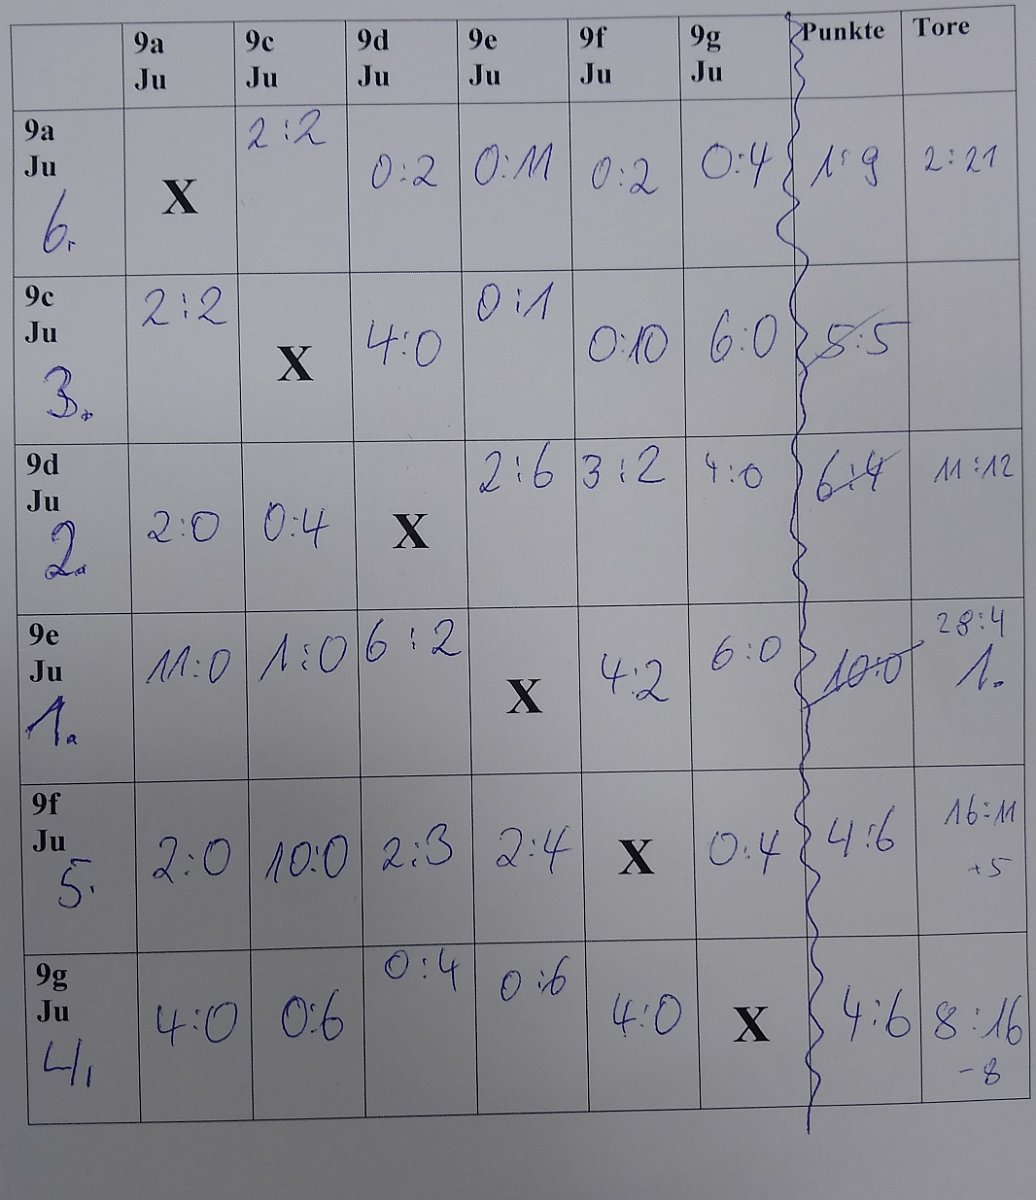 9a Ju 9c Ju 9d Ju 9e Ju 9f Ju 9g Ju Punkte Tore
9a Ju 6. X 2:2 0:2 0:11 0:2 0:4 1:9 2:21
9c Ju 3. 2:2 X 4:0 0:1 0:10 6:0 5:5
9d Ju 2. 2:0 0:4 X 2:6 3:2 4:0 6:4 11:12
9e Ju 1. 11:0 1:0 6:2 X 4:2 6:0 10:0 28:4 1.
9f Ju 5. 2:0 10:0 2:3 2:4 X 0:4 4:6 16:11 +5
9g Ju 4. 4:0 0:6 0:4 0:6 4:0 X 4:6 8:16 -8